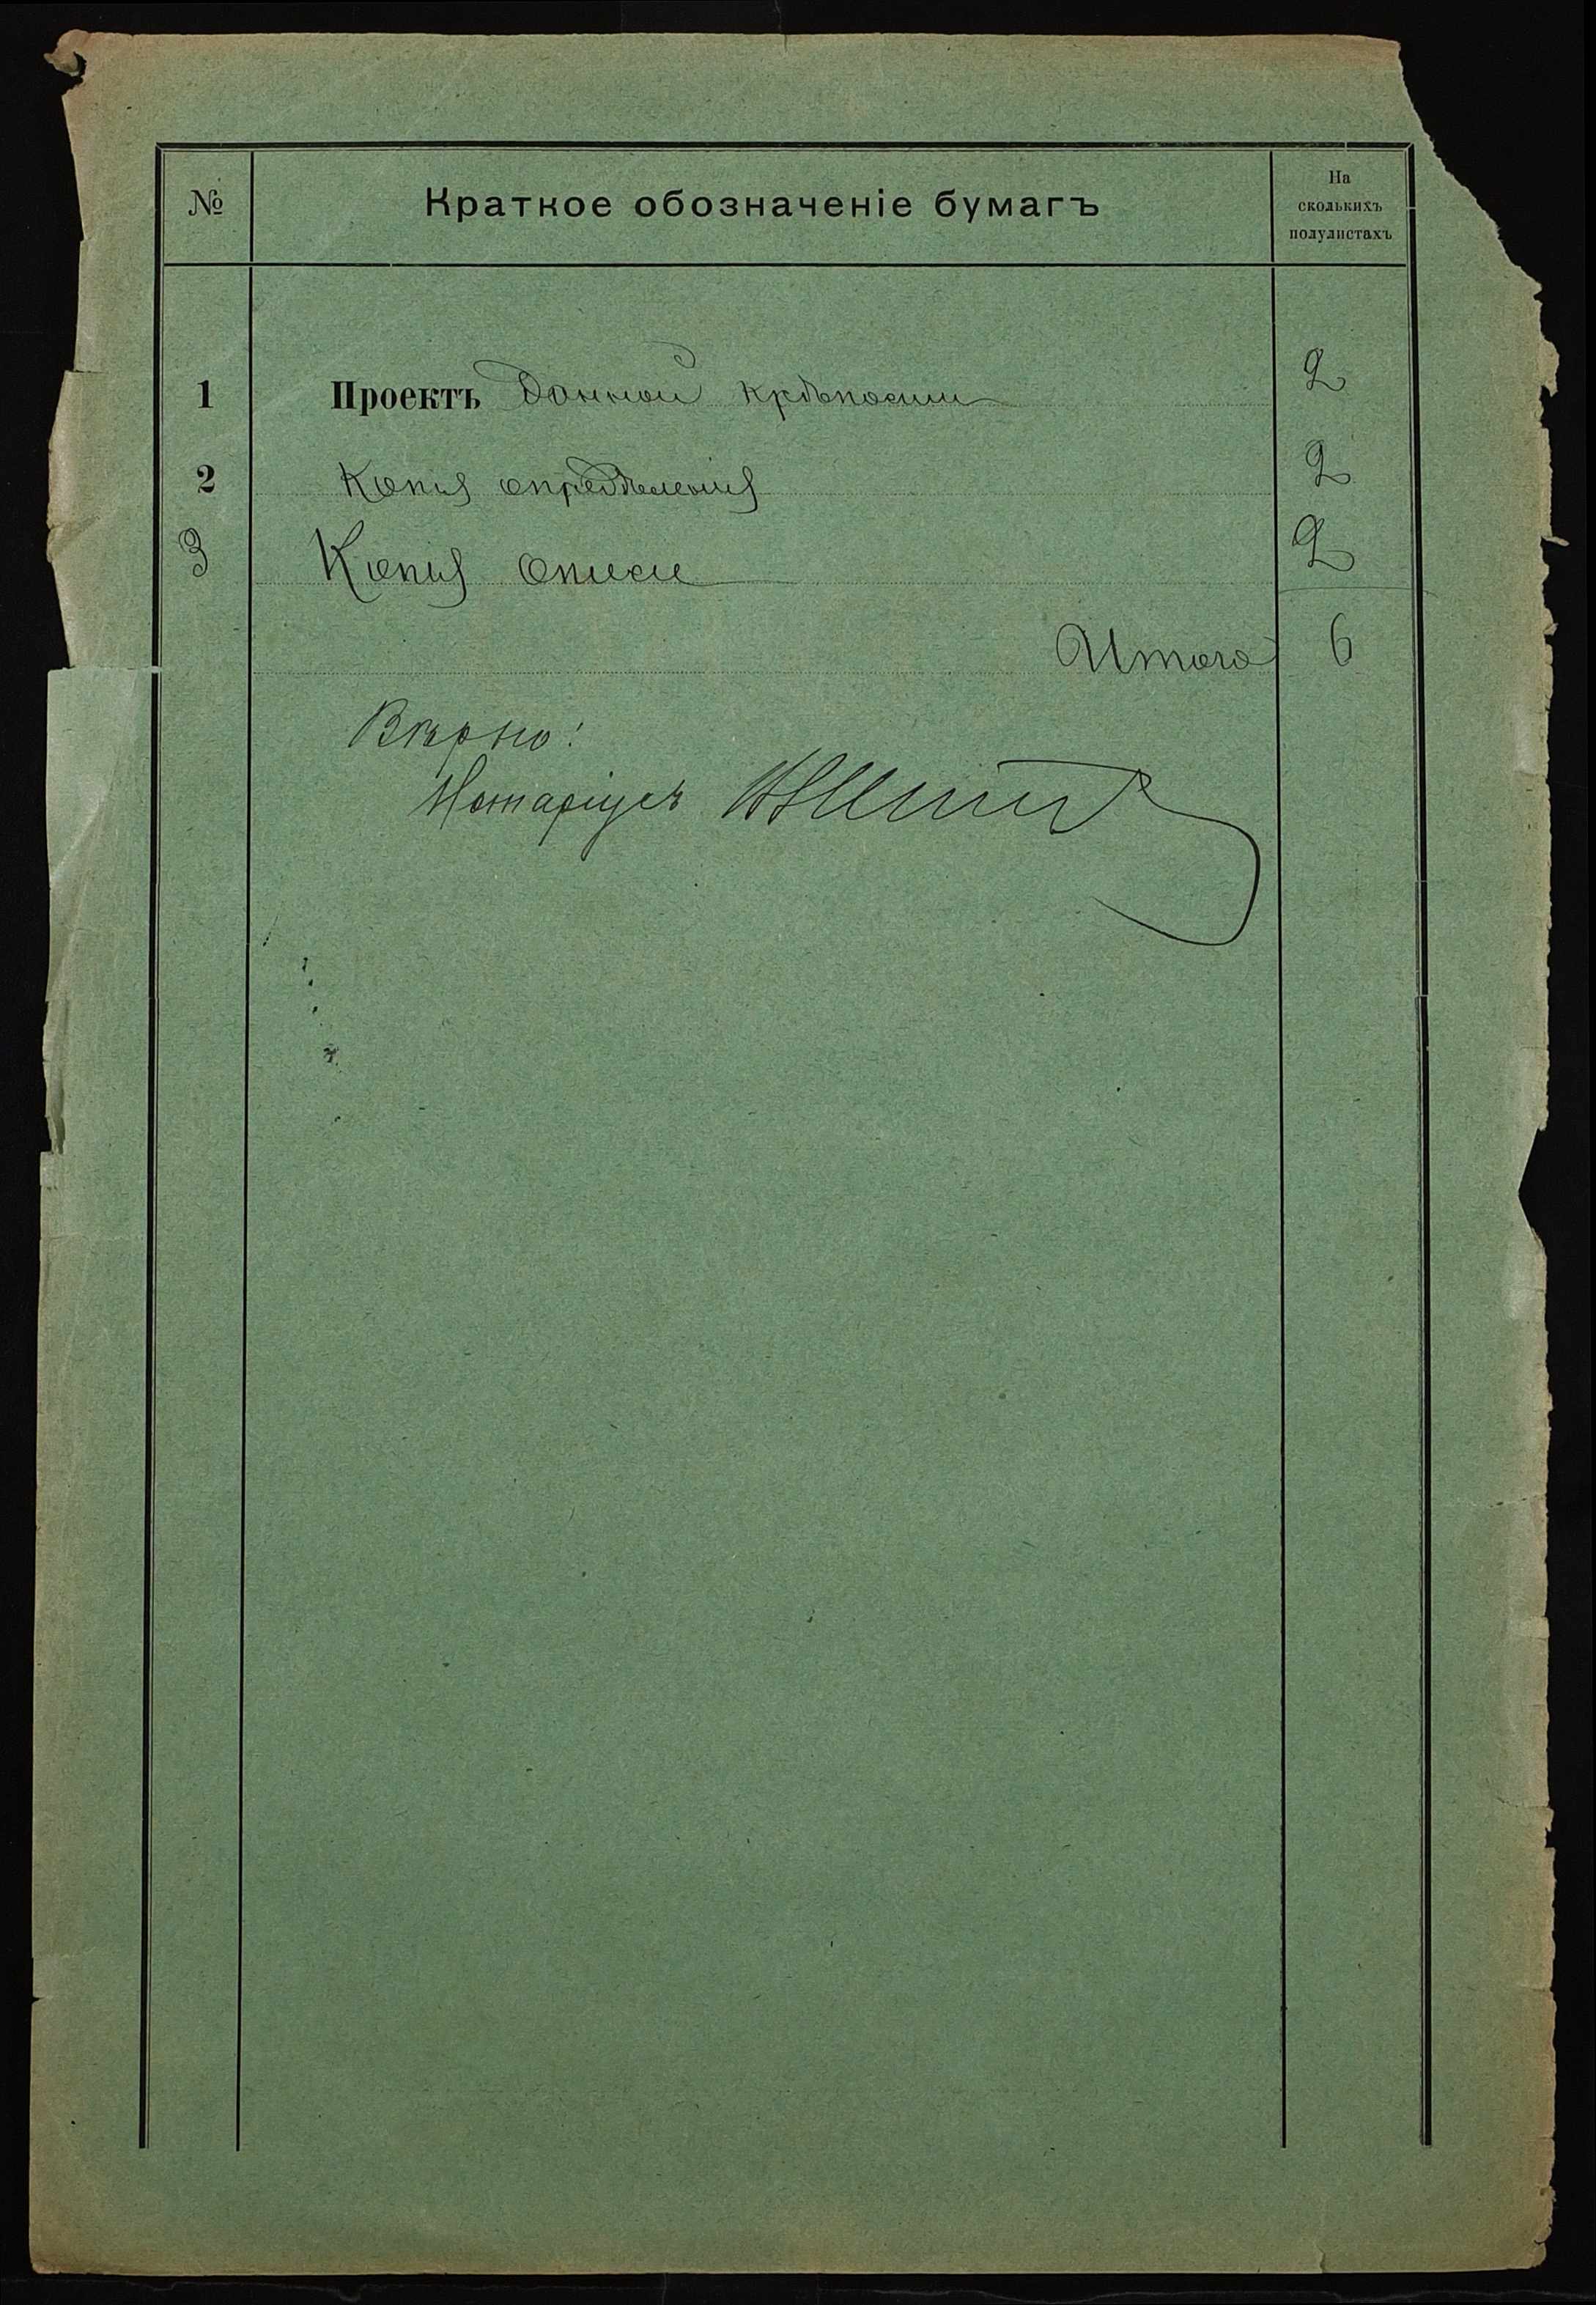 № Краткое обозначеніе бумагъ На сколькихъ полулистахъ
1 Проектъ Данной крѣпости 2
2 Копія опредѣленія 2
3 Копія описи 2
Итого 6
Вѣрно!
Нотаріусъ